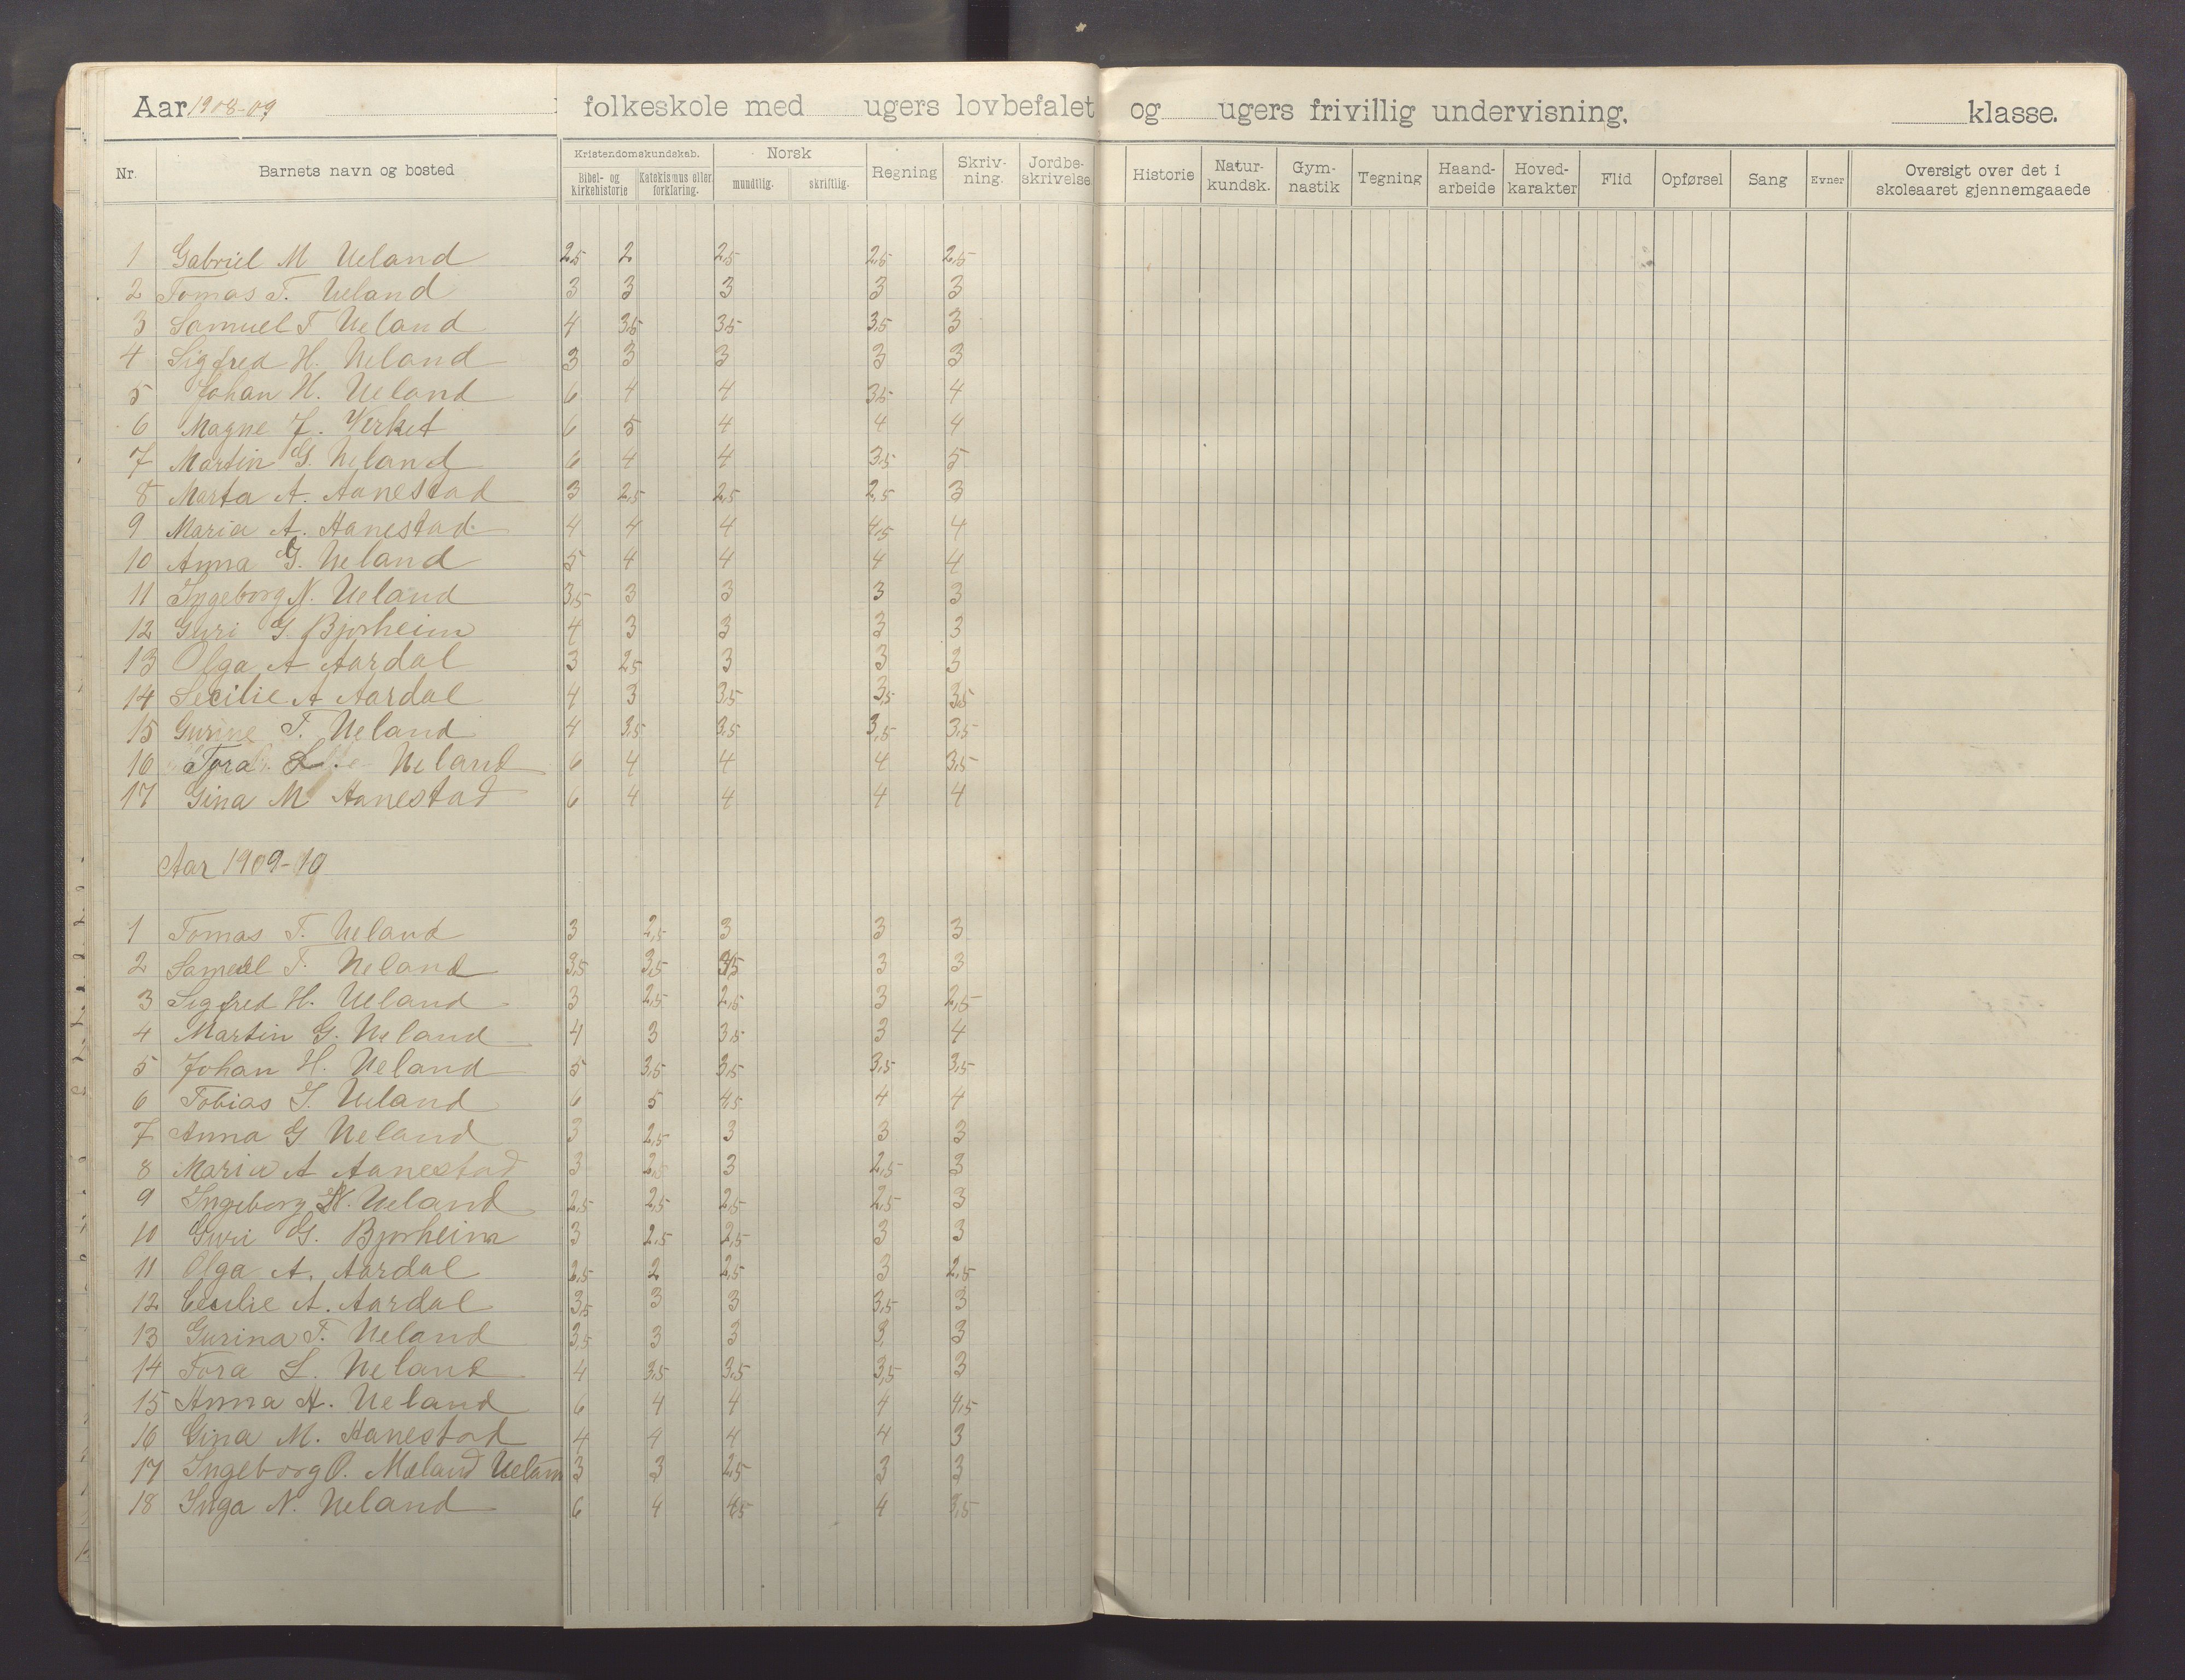 Aar 1908-09 folkeskole med ugers lovbefalet og ugers frivillig undervisning. klasse.
Nr. Barnets navn og bosted Kristendomskundskab. Norsk Regning Skriv-ning. Jordbe-skrivelse Historie Natur-kundsk. Gym-nastik Tegning Haand-arbeide Hoved-karakter Flid Opførsel Sang Evner Oversigt over det i skoleaaret gjennemgaaede
Bibel- og kirkehistorie Katekismus eller forklaring. mundtlig. skriftlig.
1 Gabriel M Ueland 2,5 2 2,5 2,5 2,5
2 Tomas T. Ueland 3 3 3 3 3
3 Samuel T Ueland 4 3,5 3,5 3,5 3
4 Sigfred H. Ueland 3 3 3 3 3
5 Johan H. Ueland 6 4 4 3,5 4
6 Magne J. Verket 6 5 4 4 4
7 Martin G. Ueland 6 4 4 3,5 5
8 Marta A. Aanestad 3 2,5 2,5 2,5 3
9 Maria A. Aanestad 4 4 4 4,5 4
10 Anna G. Ueland 5 4 4 4 4
11 Ingeborg N. Ueland 3,5 3 3 3 3
12 Guri G. Bjorheim 4 3 3 3 3
13 Olga A Aardal 3 2,5 3 3 3
14 Secilie A Aardal 4 3 3,5 3,5 3,5
15 Gurine T. Ueland 4 3,5 3,5 3,5 3,5
16 Tora L. Ueland 6 4 4 4 3,5
17 Gina M Aanestad 6 4 4 4 4
Aar 1909-10
1 Tomas T. Ueland 3 2,5 3 3 3
2 Samuel T. Ueland 3,5 3,5 3,5 3 3
3 Sigfred H. Ueland 3 2,5 2,5 3 2,5
4 Martin G. Ueland 4 3 3,5 3 4
5 Johan H. Ueland 5 3,5 3,5 3,5 3,5
6 Tobias G. Ueland 6 5 4,5 4 4
7 Anna G Ueland 3 2,5 3 3 3
8 Maria A Aanestad 3 2,5 3 2,5 3
9 Ingeborg N. Ueland 2,5 2,5 2,5 2,5 3
10 Guri G. Bjorheim 3 2,5 2,5 3 3
11 Olga A. Aardal 2,5 2 2,5 3 2,5
12 Cecilie A. Aardal 3,5 3 3 3,5 3
13 Gurina T. Ueland 3,5 3 3 3 3
14 Tora L. Ueland 4 3,5 3,5 3,5 3
15 Anna H. Ueland 6 4 4 4 4,5
16 Gina M. Aanestad 4 4 4 4 3
17 Ingeborg O. Mæland Uelan 3 3 2,5 3 3
18 Inga N. Ueland 6 4 4,5 4 3,5